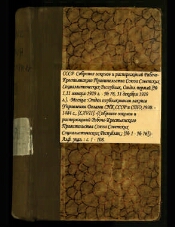 СССР. Собрание законов и распоряжений Рабоче-
Крестьянского Правительства Союза Советских
Социалистических Республик. Отдел первый (№
1, 11 января 1929 г. - № 78, 31 декабря 1929
г.). - Москва: Отдел опубликования законов
Управления Делами СНК СССР и СТО, 1928. -
1484 с., [XVIII] (Собрание законов и
распоряжений Рабоче-Крестьянского
Правительства Союза Советских
Социалистических Республик; (№ 1 - № 78))
Алф. указ.: с. 1 - 108.